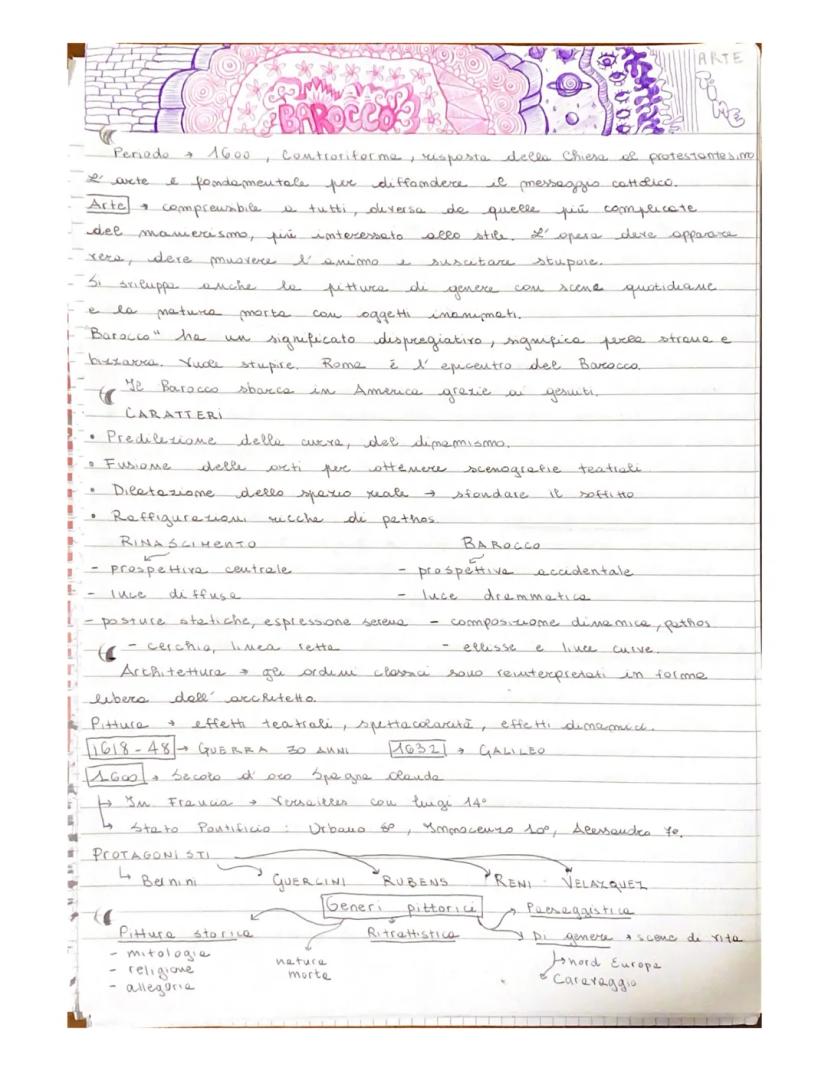 ARTE
TIME
BAROCCO
Periodo → 1600, Controriforma, risposta della Chiesa al protestantesimo
L'arte è fondamentale per diffondere il messaggio cattolico.
Arte → comprensibile a tutti, diversa da quelle più complicate
del manierismo, più interessato allo stile. L'opera deve apparare
vera, deve muovere l'animo e suscitare stupore.
Si sviluppa anche la pittura di genere con scene quotidiane
e la natura morta con oggetti inanimati.
Barocco" ha un significato dispregiativo, significa perla strana e
bizzarra. Vuole stupire. Roma è l'epicentro del Barocco.
Il Barocco sbarca in America grazie ai gesuiti.
CARATTERI
• Predilezione della curva, del dinamismo.
• Fusione delle arti per ottenere scenografie teatrali
• Dilatazione dello spazio reale → sfondare il soffitto
• Raffigurazioni ricche di pathos.
RINASCIMENTO BAROCCO
- prospettiva centrale - prospettiva accidentale
- luce diffusa - luce drammatica
- posture statiche, espressione serena - composizione dinamica, pathos
- cerchio, linea retta - ellisse e linee curve.
Architettura → gli ordini classici sono reinterpretati in forma
libera dall'architetto.
Pittura → effetti teatrali, spettacolarità, effetti dinamici.
1618-48 → GUERRA 30 ANNI 1632 → GALILEO
1600 → Secolo d'oro Spagna Olanda
→ In Francia → Versailles con Luigi 14°
→ Stato Pontificio: Urbano 8°, Innocenzo 10°, Alessandro 7°.
PROTAGONISTI
Bernini GUERCINI RUBENS RENI VELAZQUEZ
Generi pittorici
Paesaggistica
Pittura storica Ritrattistica Di genere → scene di vita
- mitologia
- religione
- allegoria
natura
morta
nord Europa
Caravaggio